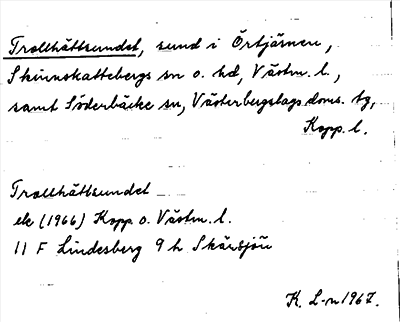 Trollhättsundet, sund i Örtjärnen,
Skinnskattebergs sn o. hd, Västm. l.,
samt Söderbärke sn, Västerbergslags doms. tg,
Kopp. l.
Trollhättsundet
ek (1966) Kopp. o. Västm. l.
11 F Lindesberg 9 h Skärsjön
K. L-n 1967.